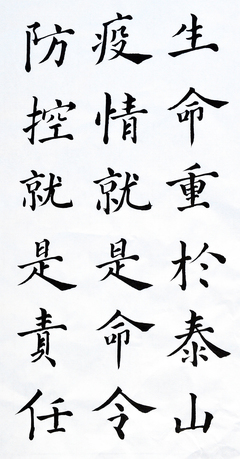 生命重於泰山
疫情就是命令
防控就是責任